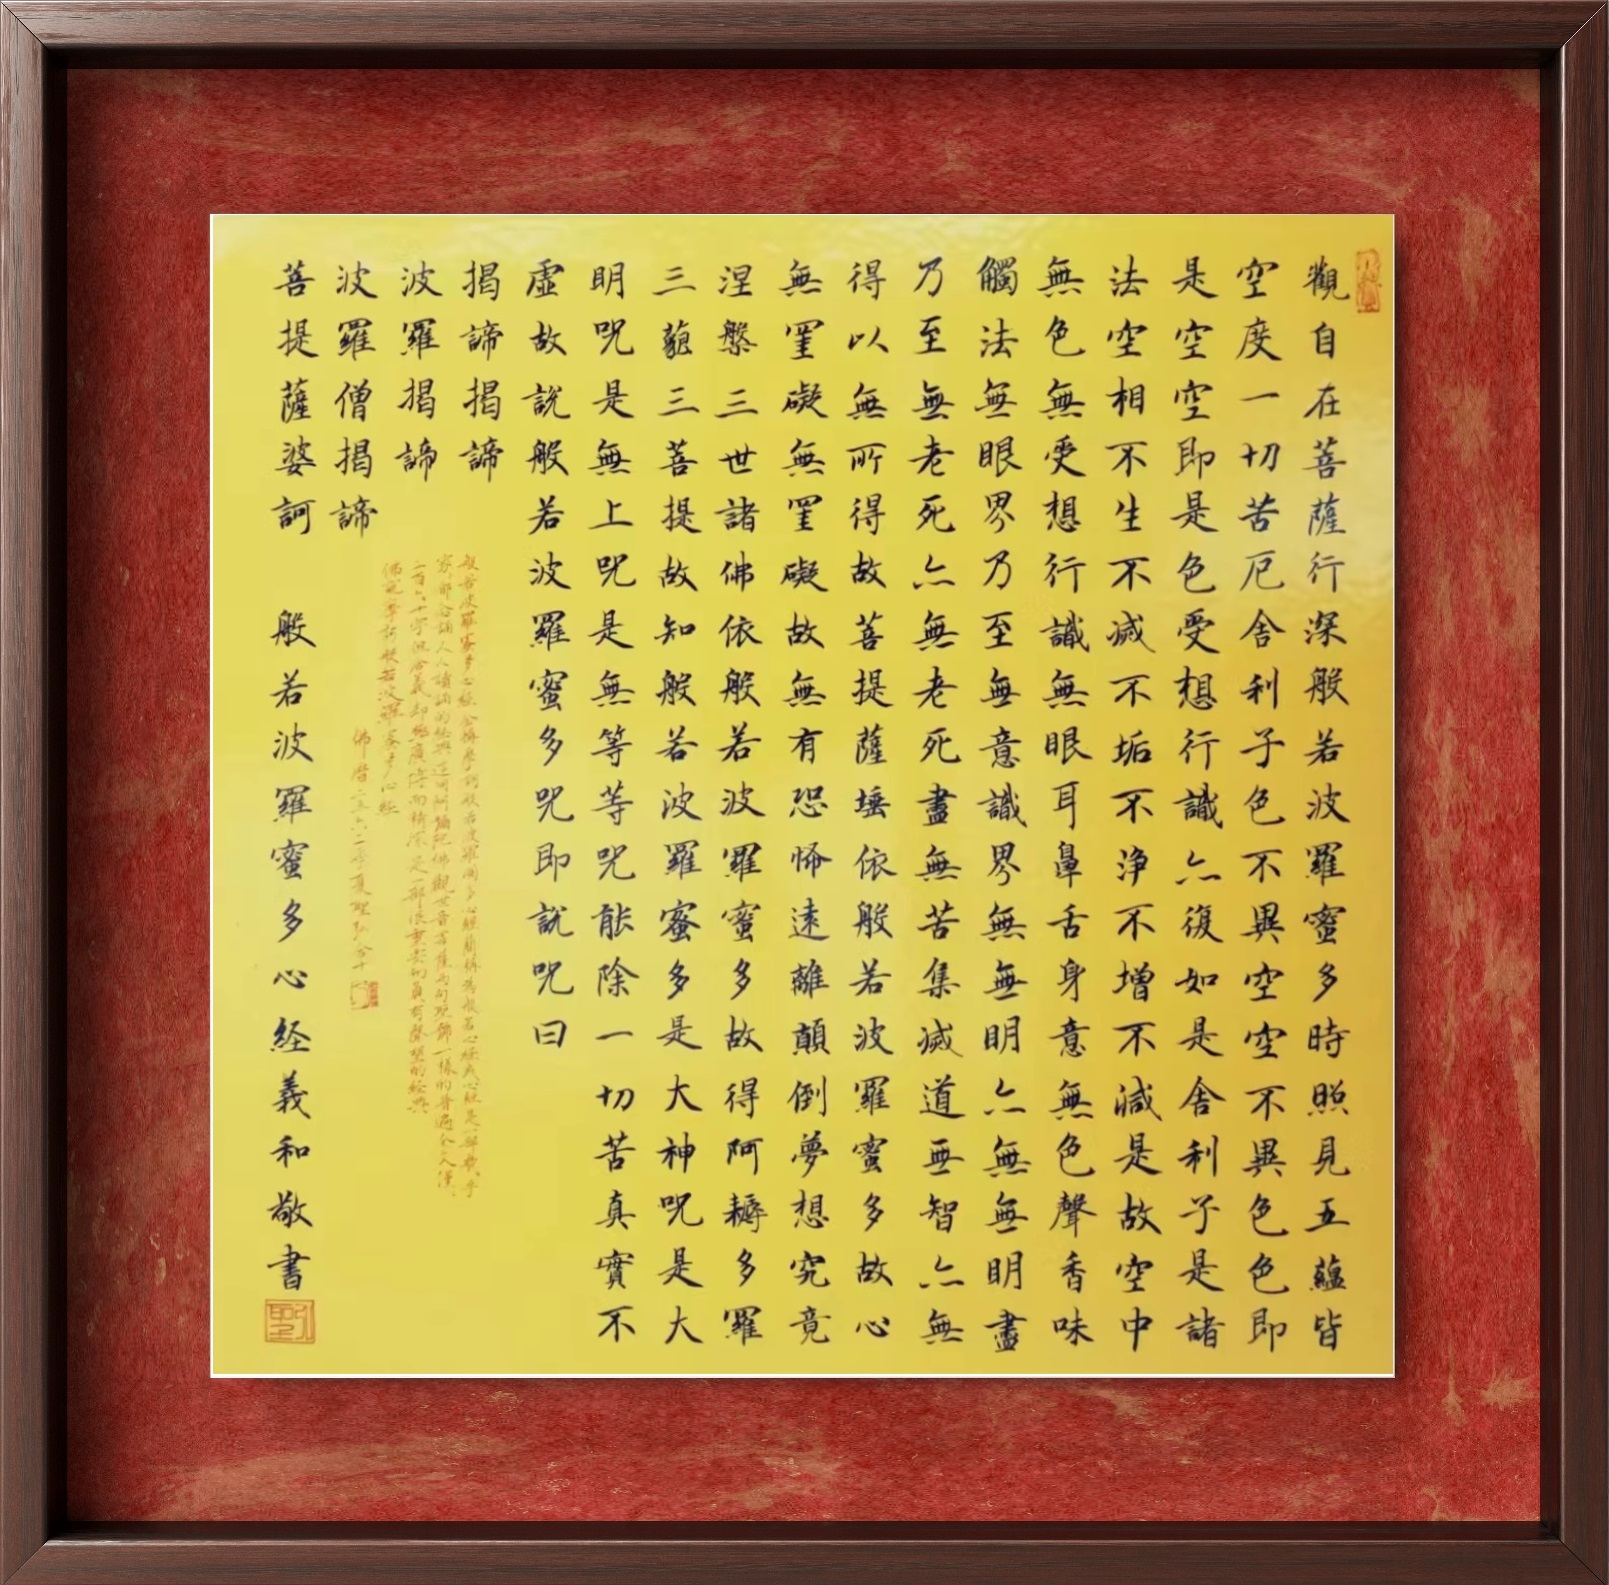 觀自在菩薩行深般若波羅蜜多時照見五蘊皆
空度一切苦厄舍利子色不異空空不異色色即
是空空即是色受想行識亦復如是舍利子是諸
法空相不生不滅不垢不淨不增不減是故空中
無色無受想行識無眼耳鼻舌身意無色聲香味
觸法無眼界乃至無意識界無無明亦無無明盡
乃至無老死亦無老死盡無苦集滅道無智亦無
得以無所得故菩提薩埵依般若波羅蜜多故心
無罣礙無罣礙故無有恐怖遠離顛倒夢想究竟
涅槃三世諸佛依般若波羅蜜多故得阿耨多羅
三藐三菩提故知般若波羅蜜多是大神咒是大
明咒是無上咒是無等等咒能除一切苦真實不
虛故說般若波羅蜜多咒即說咒曰
揭諦揭諦
波羅揭諦
波羅僧揭諦
菩提薩婆訶 般若波羅蜜多心経義和敬書
佛說摩訶般若波羅蜜多心經